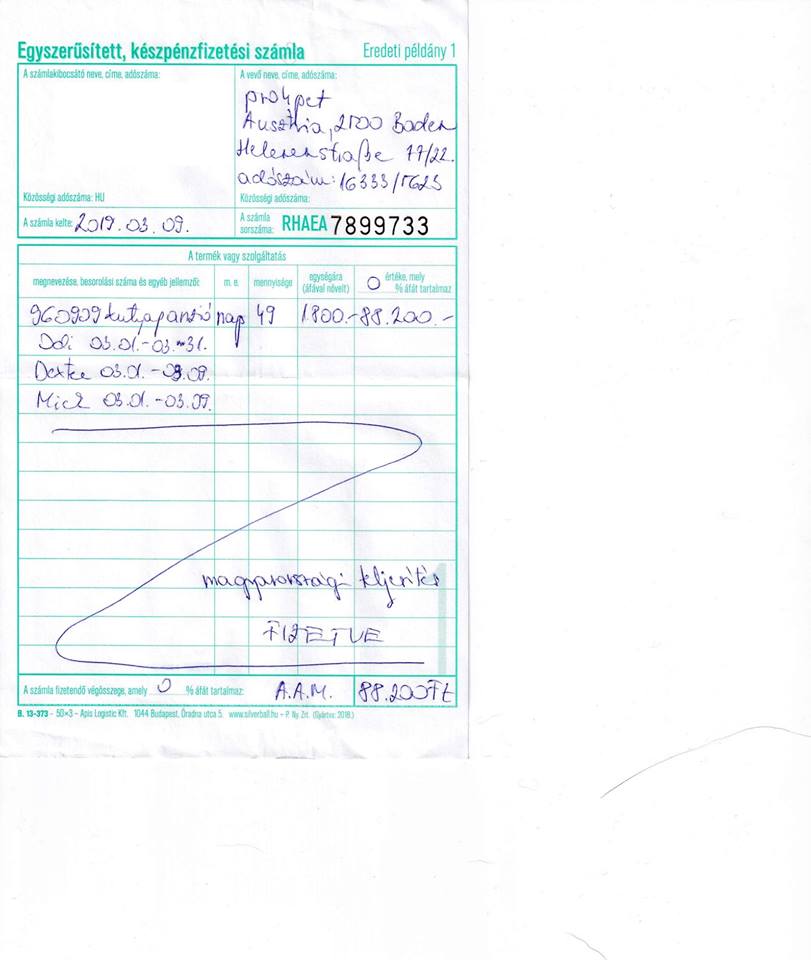 Egyszerűsített, készpénzfizetési számla Eredeti példány 1
A számlakibocsátó neve, címe, adószáma:
A vevő neve, címe, adószáma:
pro4pet
Ausztria, 2500 Baden
Helenenstraße 77/22.
adószám: 16333/5623
Közösségi adószáma: HU
Közösségi adószáma:
A számla kelte: 2019. 03. 09.
A számla sorszáma: RHAEA 7899733
A termék vagy szolgáltatás
megnevezése, besorolási száma és egyéb jellemzői: m. e. mennyisége egységára (áfával növelt) 0 értéke, mely % áfát tartalmaz
960909 kutyapanzió nap 49 1800.- 88.200.-
Doli 03.01.-03.31.
03.01.-09.09.
03.01.-03.09.
magyarországi teljesítés
FIZETVE
A számla fizetendő végösszege, amely 0 % áfát tartalmaz: A.A.M. 88.200 Ft
B. 13-373 – 50×3 – Apis Logistic Kft. 1044 Budapest, Óradna utca 5. www.silverball.hu – P. Ny Zrt. (Gyártva: 2018.)